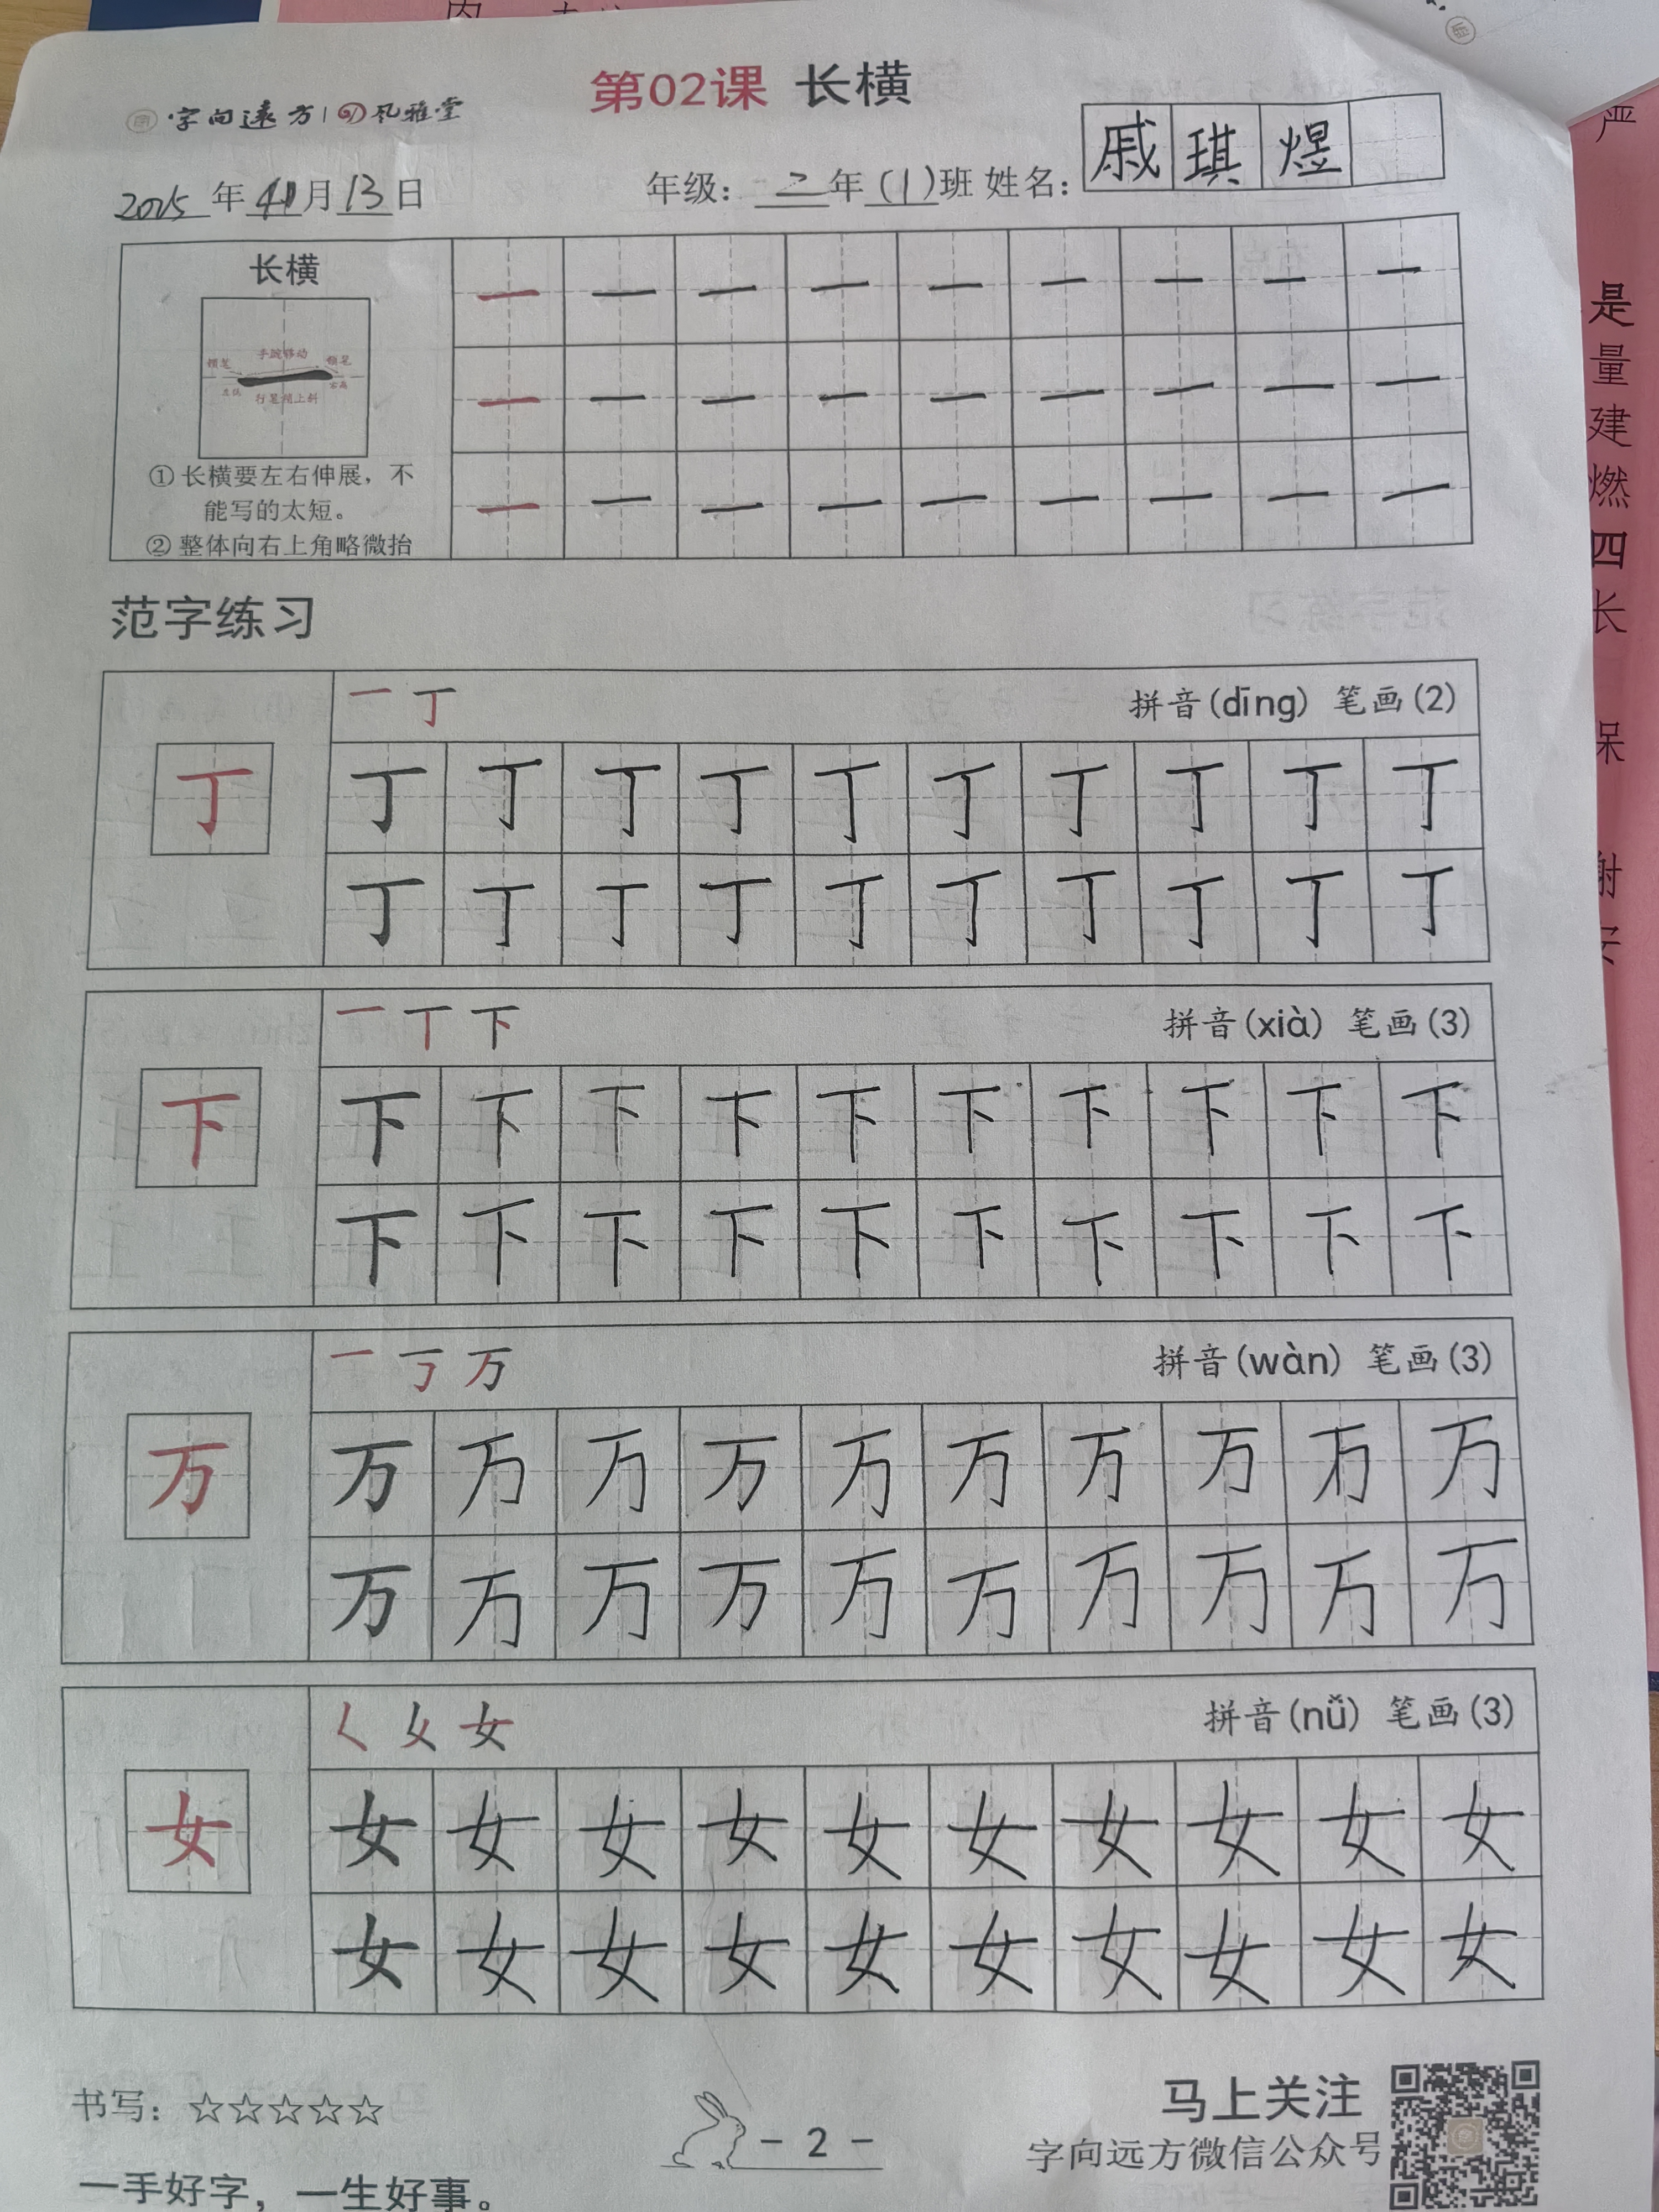 第02课 长横
字向远方 | 风雅堂
戚琪煜
2025年 11月13日 年级：二年(1)班 姓名：
长横
一 一 一 一 一 一 一 一 一
手腕移动
行笔稍上斜
一 一 一 一 一 一 一 一 一
① 长横要左右伸展，不
能写的太短。
② 整体向右上角略微抬
一 一 一 一 一 一 一 一 一
范字练习
一 丁 拼音(dīng) 笔画(2)
丁
丁 丁 丁 丁 丁 丁 丁 丁 丁 丁
丁 丁 丁 丁 丁 丁 丁 丁 丁 丁
一 丅 下 拼音(xià) 笔画(3)
下
下 下 下 下 下 下 下 下 下 下
下 下 下 下 下 下 下 下 下 下
一 丂 万 拼音(wàn) 笔画(3)
万
万 万 万 万 万 万 万 万 万 万
万 万 万 万 万 万 万 万 万 万
女 拼音(nǚ) 笔画(3)
女
女 女 女 女 女 女 女 女 女 女
女 女 女 女 女 女 女 女 女 女
书写：☆☆☆☆☆
- 2 -
马上关注
字向远方微信公众号
一手好字，一生好事。
是
量
建
燃
四
长